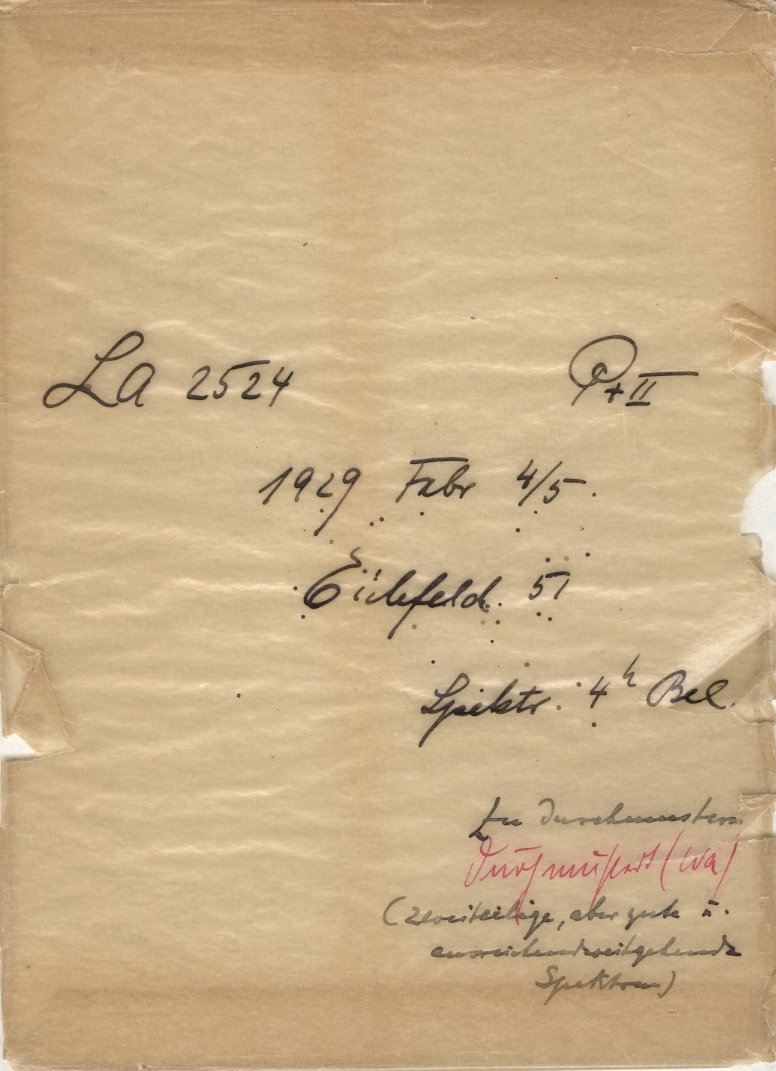 La 2524 P+II
1929 Febr 4/5.
Eichfeld. 51
Spektr. 4h Bel.
Zu Durchmustern
Durchmustert (Wa)
(zweiteilige, aber gute u.
ausreichendweitgehende
Spektren)